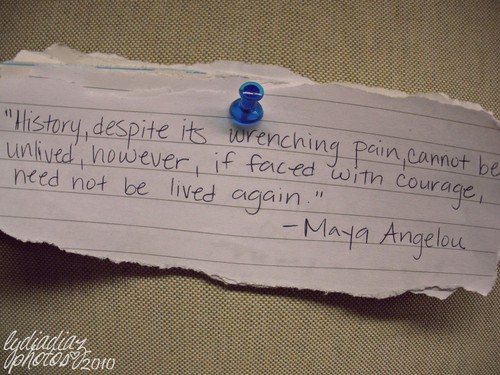 "History, despite its wrenching pain, cannot be
unlived, however, if faced with courage,
need not be lived again."
-Maya Angelou
lydiadiaz
photos 2010